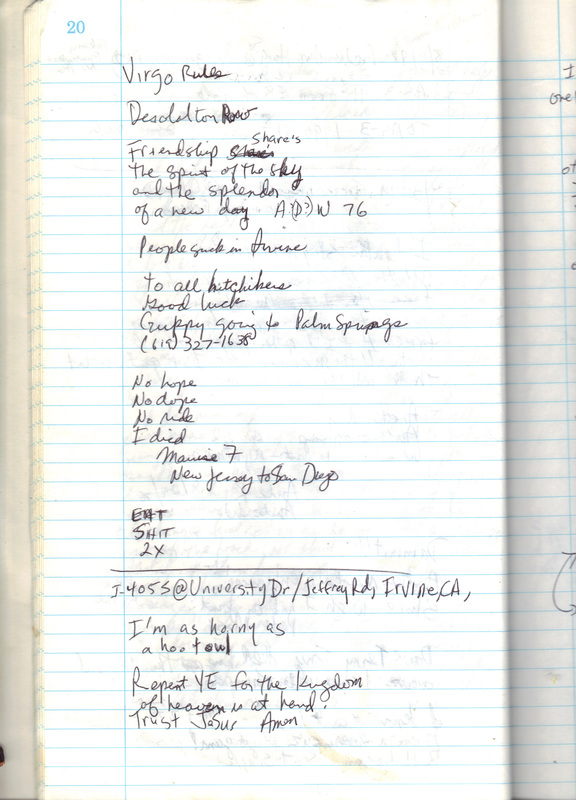 20
Virgo Rules
Desolation Row
Friendship Share's
the spirit of the sky
and the splendor
of a new day A(D?)W 76
People suck in Irvine
to all hitchikers
Good luck
Guppy going to Palm Springs
(619) 327-1638
No hope
No dope
No ride
I died
7
New Jersey to San Diego
EAT
SHIT
2X
I-405S@University Dr/Jeffrey Rd, Irvine, CA,
I'm as horny as
a hoot owl
Repent YE for the Kingdom
of heaven is at hand.
Trust Jasus Amon